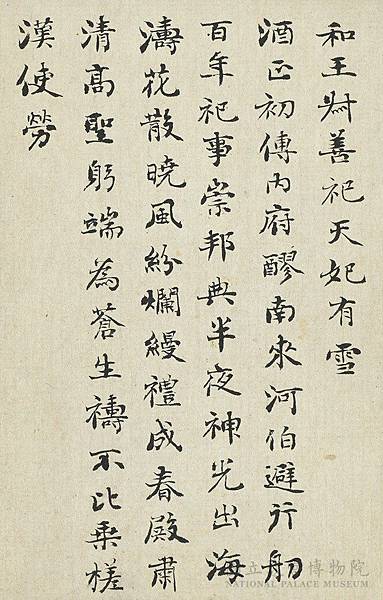 和王尉善祀天妃有雪
酒正初傳內府醪南來河伯避行舠
百年祀事崇邦典半夜神光出海
濤花散曉風紛爛縵禮成春殿肅
清高聖躬端為蒼生禱不比乘槎
漢使勞
國立故宮博物院
NATIONAL PALACE MUSEUM